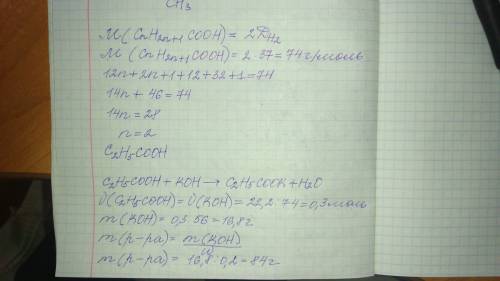 CH₃
M(CnH2n+1COOH) = 2DH2
M(CnH2n+1COOH) = 2·37 = 74 г/моль
12n+2n+1+12+32+1=74
14n + 46 = 74
14n = 28
n = 2
C₂H₅COOH
C₂H₅COOH + KOH → C₂H₅COOK + H₂O
ν(C₂H₅COOH) = ν(KOH) = 22,2 : 74 = 0,3 моль
m(KOH) = 0,3·56 = 16,8 г
m(р-ра) = m(KOH)
m(р-ра) = 16,8 : 0,2 = 84 г